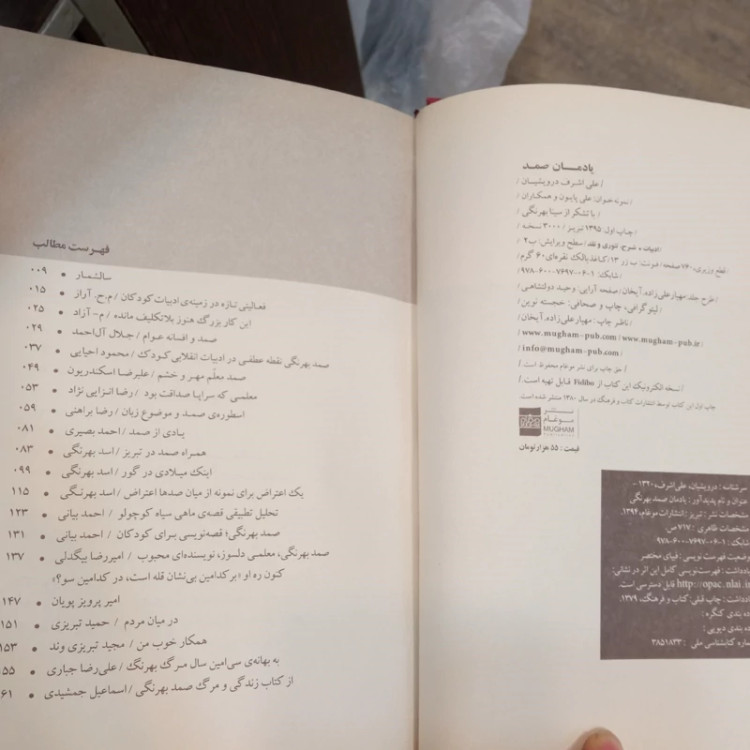 یادمـــان صمد
/ علی اشرف درویشیان /
/ نمونه خوان: علی پاپون و همکاران /
/ با تشکر از سینا بهرنگی /
/ چاپ اول ۱۳۹۵ تبریز / ۳۰۰۰ نسخه /
/ ادبیات + شرح، تئوری و نقد / سطح ویرایش: ب ۲ /
/ قطع وزیری، ۷۶۰ صفحه / فونت: ب زر ۱۳ / کاغذ بالک نقره‌ای ۶۰ گرم /
/ شابک: ۱-۰۶-۷۶۹۷-۶۰۰-۹۷۸ /
/ طرح جلد: مهیار علی‌زاده، آیخان / صفحه آرایی: وحید دولتشاهی /
/ لیتوگرافی، چاپ و صحافی: خجسته نوین /
/ ناظر چاپ: مهیار علی‌زاده، آیخان /
/ www.mugham-pub.com / www.mugham-pub.ir /
/ info@mugham-pub.com /
/ حق چاپ برای نشر موغام محفوظ است. /
/ نسخه الکترونیک این کتاب از Fidibo قابل تهیه است. /
چاپ اول این کتاب توسط انتشارات کتاب و فرهنگ در سال ۱۳۸۰ منتشر شده است.
نـــشـــر
مـوغـام
MUGHAM
قیمت: ۵۵ هزار تومان
سرشناسه : درویشیان، علی‌اشرف، ۱۳۲۰ -
عنوان و نام پدیدآور : یادمان صمد بهرنگی
مشخصات نشر : تبریز : انتشارات موغام، ۱۳۹۴.
مشخصات ظاهری : ۷۱۷ ص.
شابک : ۱-۰۶-۷۶۹۷-۶۰۰-۹۷۸
وضعیت فهرست نویسی : فیپای مختصر
یادداشت : فهرست‌نویسی کامل این اثر در نشانی:
http://opac.nlai.ir قابل دسترسی است.
یادداشت : چاپ قبلی: کتاب و فرهنگ، ۱۳۷۹.
رده بندی کنگره :
رده بندی دیویی :
شماره کتابشناسی ملی : ۳۸۵۱۸۳۳
فهرست مطالب
سالشمار • ۰۰۹
فعالیتی تازه در زمینه‌ی ادبیات کودکان / م.ح. آراز • ۰۱۵
این کار بزرگ هنوز بلاتکلیف مانده / م- آزاد • ۰۲۵
صمد و افسانه عوام / جلال آل‌احمد • ۰۲۹
صمد بهرنگی نقطه عطفی در ادبیات انقلابی کودک / محمود احیایی • ۰۳۷
صمد معلّم مهر و خشم / علیرضا اسکندریون • ۰۴۹
معلمی که سراپا صداقت بود / رضا انزابی نژاد • ۰۵۳
اسطوره‌ی صمد و موضوع زبان / رضا براهنی • ۰۵۹
یـادی از صمد / احمد بصیری • ۰۸۱
همراه صمد در تبریز / اسد بهرنگی • ۰۸۳
اینک میلادی در گور / اسد بهرنگی • ۰۹۹
یک اعتراض برای نمونه از میان صدها اعتراض / اسد بهرنگی • ۱۱۵
تحلیل تطبیقی قصه‌ی ماهی سیاه کوچولو / احمد بیانی • ۱۲۳
صمد بهرنگی؛ قصه‌نویسی برای کودکان / احمد بیانی • ۱۳۱
صمد بهرنگی، معلمی دلسوز، نویسنده‌ای محبوب / امیررضا بیگدلی • ۱۳۷
کنون ره او «بر کدامین بی‌نشان قله است، در کدامین سو؟»
امیر پرویز پویان • ۱۴۷
در میان مردم / حمید تبریزی • ۱۵۱
همکار خوب من / مجید تبریزی وند • ۱۵۳
به بهانه‌ی سی‌امین سال مرگ بهرنگ / علی‌رضا جباری • ۱۵۵
از کتاب زندگی و مرگ صمد بهرنگی / اسماعیل جمشیدی • ۱۶۱